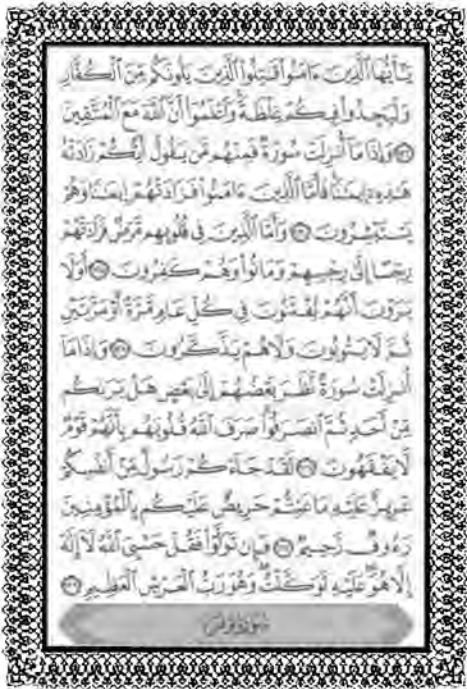 يَٰٓأَيُّهَا ٱلَّذِينَ ءَامَنُوا۟ قَٰتِلُوا۟ ٱلَّذِينَ يَلُونَكُم مِّنَ ٱلْكُفَّارِ
وَلْيَجِدُوا۟ فِيكُمْ غِلْظَةً وَٱعْلَمُوٓا۟ أَنَّ ٱللَّهَ مَعَ ٱلْمُتَّقِينَ
۝ وَإِذَا مَآ أُنزِلَتْ سُورَةٌ فَمِنْهُم مَّن يَقُولُ أَيُّكُمْ زَادَتْهُ
هَٰذِهِۦٓ إِيمَٰنًا فَأَمَّا ٱلَّذِينَ ءَامَنُوا۟ فَزَادَتْهُمْ إِيمَٰنًا وَهُمْ
يَسْتَبْشِرُونَ ۝ وَأَمَّا ٱلَّذِينَ فِى قُلُوبِهِم مَّرَضٌ فَزَادَتْهُمْ
رِجْسًا إِلَىٰ رِجْسِهِمْ وَمَاتُوا۟ وَهُمْ كَٰفِرُونَ ۝ أَوَلَا
يَرَوْنَ أَنَّهُمْ يُفْتَنُونَ فِى كُلِّ عَامٍ مَّرَّةً أَوْ مَرَّتَيْنِ
ثُمَّ لَا يَتُوبُونَ وَلَا هُمْ يَذَّكَّرُونَ ۝ وَإِذَا مَآ
أُنزِلَتْ سُورَةٌ نَّظَرَ بَعْضُهُمْ إِلَىٰ بَعْضٍ هَلْ يَرَىٰكُم
مِّنْ أَحَدٍ ثُمَّ ٱنصَرَفُوا۟ صَرَفَ ٱللَّهُ قُلُوبَهُم بِأَنَّهُمْ قَوْمٌ
لَّا يَفْقَهُونَ ۝ لَقَدْ جَآءَكُمْ رَسُولٌ مِّنْ أَنفُسِكُمْ
عَزِيزٌ عَلَيْهِ مَا عَنِتُّمْ حَرِيصٌ عَلَيْكُم بِٱلْمُؤْمِنِينَ
رَءُوفٌ رَّحِيمٌ ۝ فَإِن تَوَلَّوْا۟ فَقُلْ حَسْبِىَ ٱللَّهُ لَآ إِلَٰهَ
إِلَّا هُوَ عَلَيْهِ تَوَكَّلْتُ وَهُوَ رَبُّ ٱلْعَرْشِ ٱلْعَظِيمِ ۝